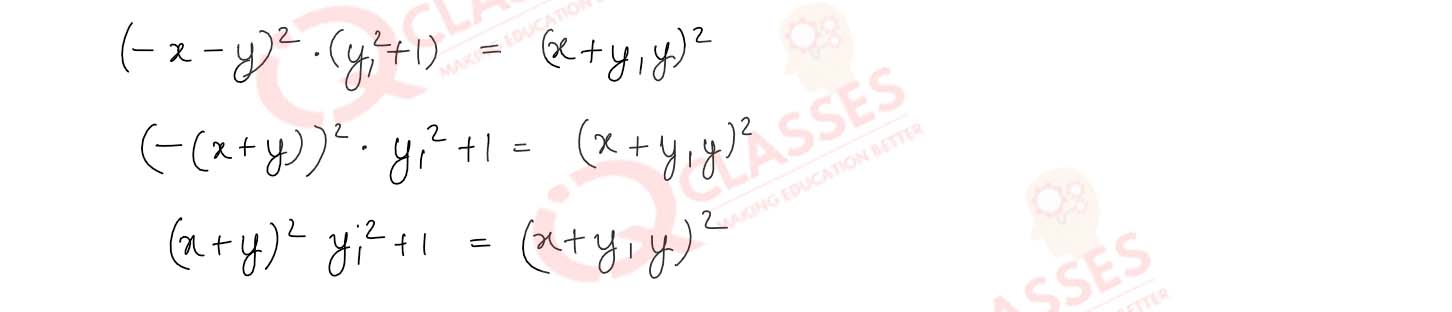 (-x-y)²·(y₁²+1) = (x+y₁y)²
(-(x+y))²· y₁²+1 = (x+y₁y)²
(x+y)² y₁²+1 = (x+y₁y)²
CLASSES
MAKING EDUCATION
CLASSES
MAKING EDUCATION BETTER
ASSES
TTER